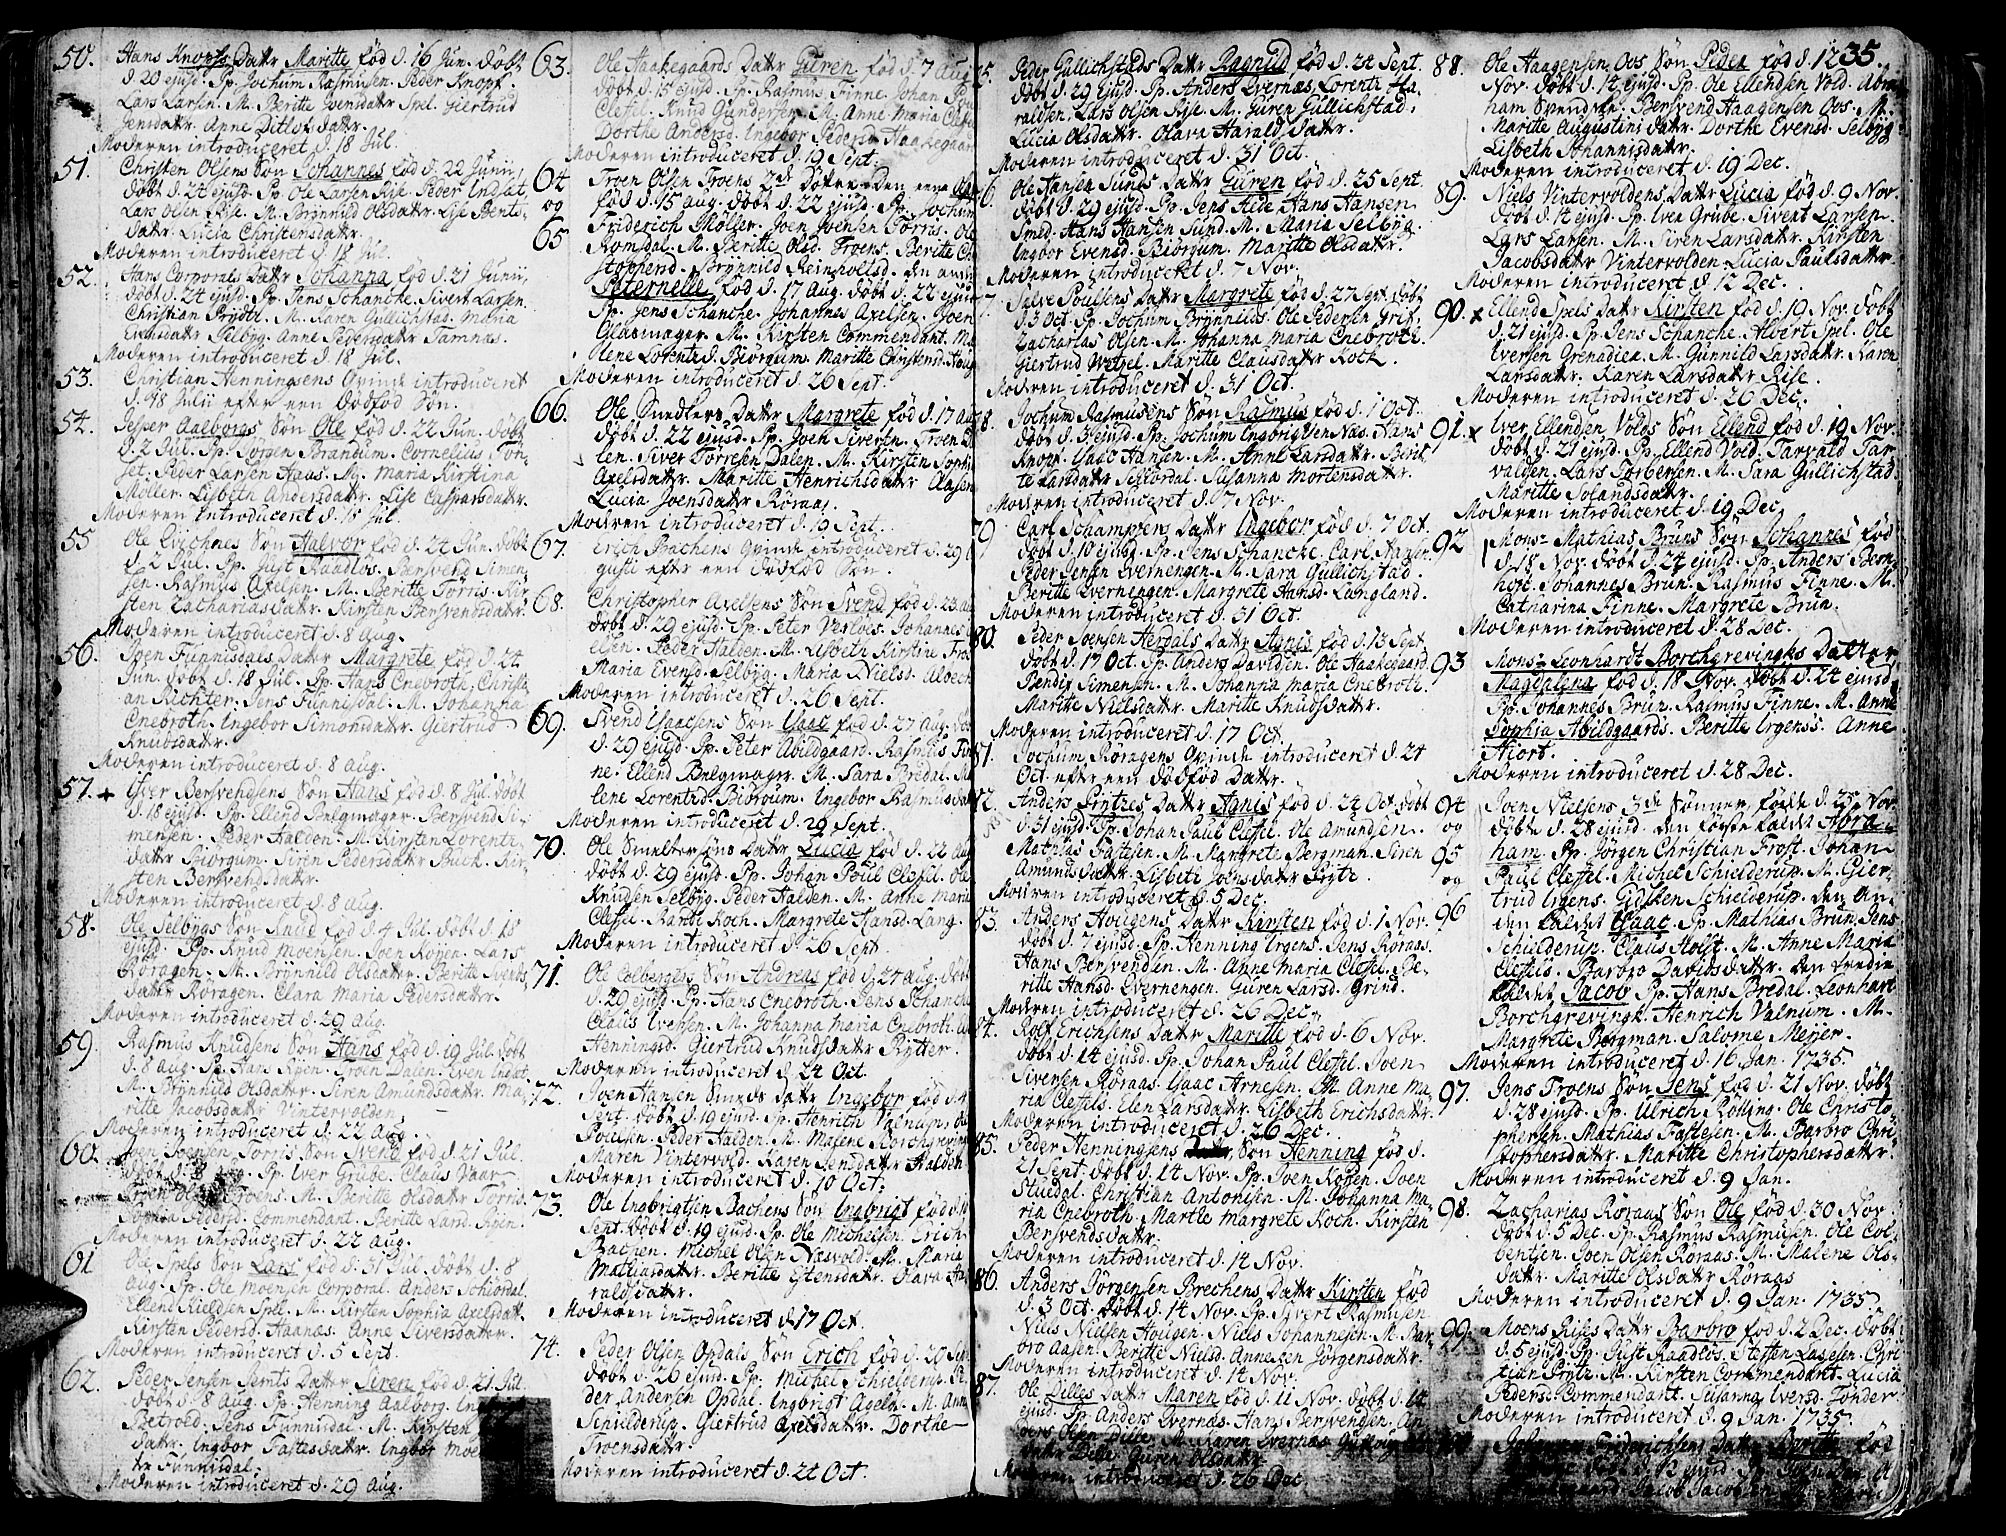 50. Hans Knopfs Datter Maritte fød d. 16 Jun. døbt
d. 20 ejusd. Sp. Jochum Rasmusen. Peder Knopf.
Lars Larsen. M. Beritte Svensdattr Spel. Giertrud
Jensdattr. Anne Ditlofsdattr.
Moderen introduceret d. 18 Jul.
51. Christen Olsens Søn Johannes fød d. 22 Junii,
døbt d. 24 ejusd. Sp. Ole Larsen Rise. Peder Indset.
Lars Olsen Rise. M. Brönnild Olsdattr. Lise Bents-
dattr. Lucia Christensdattr.
Moderen introduceret d. 18 Jul.
52. Hans Corporals Dattr Johanna fød d. 21 Junii,
døbt d. 24 ejusd. Sp. Jens Schancke. Sivert Larsen.
Christian Prydtz. M. Karen Gullichstad. Maria
Evensdattr Selbyg. Anne Pedersdattr Tamnas.
Moderen introduceret d. 18 Jul.
53. Christian Henningsens Qvinde introduceret
d. 18 Julii efter een dødfød Søn.
54. Jesper Aalborgs Søn Ole fød d. 22 Jun. døbt
d. 2 Jul. Sp. Jörgen Brandum. Cornelius Ton-
set. Peder Larsen Haas. M. Maria Kirstina
Möller. Lisbeth Andersdattr. Lise Caspersdattr.
Moderen introduceret d. 18 Jul.
55 Ole Evichnes Søn Halvor fød d. 24 Jun. døbt
d. 2 Jul. Sp. Just Raadlos. Bersvend Simen-
sen. Rasmus Axelsen. M. Beritte Törris. Kir-
sten Zachariasdattr. Kirsten Bersvendsdattr.
Moderen introduceret d. 8 Aug.
56. Joen Funnisdals Dattr Margrete fød d. 24
Jun. døbt d. 18 Jul. Sp. Hans Cnebroth. Christi-
an Richter. Jens Funnisdal. M. Johanna
Cnebroth. Ingebor Simonsdattr. Giertrud
Knudsdattr.
Moderen introduceret d. 8 Aug.
57. + Iver Bersvendsens Søn Hans fød d. 8 Jul. døbt
d. 18 ejusd. Sp. Ellend Bælgmager. Bersvend Si-
mensen. Peder Halden. M. Kirsten Lorents-
dattr Biörgum. Siren Pedersdattr Buch. Kir-
sten Bersvendsdattr.
Moderen introduceret d. 8 Aug.
58. Ole Selbygs Søn Knud fød d. 4 Jul. døbt d. 18
ejusd. Sp. Knud Moensen. Joen Köyen. Lars
Röragen. M. Brynnild Olsdattr. Berite Svends-
dattr Röragen. Clara Maria Pedersdattr.
Moderen introduceret d. 29 Aug.
59 Rasmus Knudsens Søn Hans fød d. 19 Jul. døbt
d. 8 Aug. Sp. Hans Ryen. Troen Dalen. Even Indset.
M. Brynnild Olsdattr. Siren Amundsdattr. Ma-
ritte Jacobsdattr Vintervolden.
Moderen introduceret d. 22 Aug.
60. Joen Joensen Törris Søn Svend fød d. 21 Jul.
døbt d. Aug. Sp. Iver Grube. Claus Vaar.
Troen Olsen Troens. M. Beritte Olsdattr Törris.
Sophia Pedersd. Commendant. Beritte Larsd. Ryen.
Moderen introduceret d. 22 Aug.
61 Ole Spels Søn Lars fød d. 31 Jul. døbt d. 8
Aug. Sp. Ole Moensen Corporal. Anders Schiordal.
Ellend Kieldsen Spel. M. Kirsten Sophia Axelsdattr.
Kirsten Pedersd. Haanæs. Anne Siversdattr.
Moderen introduceret d. 5 Sept.
62. Peder Jensen Semts Datter Siren fød d. 21 Jul.
døbt d. 8 Aug. Sp. Henning Aalborg.
Jens Funnisdal. M. Kirsten
dattr. Ingbor Fastesdattr. Ingbor
Funnisdal.
Moderen introduceret d. 29 Aug.
63. Ole Haakegaards Dattr Guren fød d. 7 Aug
døbt d. 15 ejusd. Sp. Rasmus Finne. Johan
Clefsel. Knud Gundersen. M. Anne Maria Clefsel
Dorthe Andersd. Ingebor Pedersd Haakegaard
Moderen introduceret d. 19 Sept.
64 og 65 Troen Olsen Troens 2de Døtre. Den eene
fød d. 15 Aug. døbt d. 22 ejusd. Sp. Jochum
Friderich Möller. Joen Joensen Törris. Ole
Romdal. M. Beritte Olsd. Troens. Beritte
Stoppensd. Brynnild Reinholtsd. den anden
Peternelle fød d. 17 Aug. døbt d. 22 ejusd
Sp. Jens Schanche. Johannes Axelsen. Joen
Glasmager. M. Kirsten Commendant. Ma-
lene Lorentsd. Biörgum. Maritte Christensd.
Moderen introduceret d. 26 Sept.
66. Ole Snedkers Dattr Margrete fød d. 17 Aug
døbt d. 22 ejusd. Sp. Joen Siversen. Troen Da-
len. Siver Torresen Dalen. M. Kirsten Sophia
Axelsdattr. Maritte Henrichsdattr Olassen
Lucia Joensdattr Röraas.
Moderen introduceret d. 19 Sept.
67. Erich Bachens Qvinde introduceret d. 29 Au-
gusti efter een dødfød Søn.
68. Christopher Axelsens Søn Svend fød d. 23 Aug
døbt d. 29 ejusd. Sp. Peter Vesloes. Johannes
Peder Halden. M. Lisbeth Kirstine
Maria Evensd. Selbyg. Maria Nielsd.
Moderen introduceret d. 26 Sept.
69. Svend Isaacsens Søn Isaac fød d. 27 Aug. døbt
d. 29 ejusd. Sp. Peter Abildgaard. Rasmus Fin-
ne. Ellend Bælgmagr. M. Sara Bredal. Ma-
lene Lorentsd. Biörgum. Ingebor Rasmusdattr
Moderen introduceret d. 29 Sept.
70. Ole Smeltersens Dattr Lucia fød d. 22 Aug
døbt d. 29 ejusd. Sp. Johan Poul Clefsel. Ole
Knudsen Selbyg. Peder Halden. M. Anne Maria
Clefsel. Rande Koch. Margrete Hansd. Lang.
Moderen introduceret d. 26 Sept
71. Ole Colbergens Søn Andreas fød d. 24 Aug. døbt
d. 29 ejusd. Sp. Hans Cnebroth. Jens Schanche
Claus Iversen. M. Johanna Maria Cnebroth.
Henningsd. Giertrud Knudsdattr Rytter.
Moderen introduceret d. 24 Oct.
72. Joen Hansen Sunds dattr Ingebor fød d.
Sept. døbt d. 19 ejusd. Sp. Henrich Valnum.
Poulsen. Peder Halden. M. Malene Borchgreving
Maren Vintervold. Karen Jensdattr Halden.
Moderen introduceret d. 10 Oct.
73. Ole Ingbrigtsen Bachens Søn Ingbrigt fød d.
Sept. døbt d. 19 ejusd. Sp. Ole Michelsen. Erich
Bachen. Michel Olsen Næsvold. M. Maria
Mathiasdattr. Beritte Estensdattr. Olava Ha-
raldsdattr.
Moderen introduceret d. 17 Oct.
74. Peder Olsen Opdals Søn Erich fød d. 20 Sept.
døbt d. 26 ejusd. Sp. Michel Schielderup. Pe-
der Andersen Opdal. Ingbrigt Ageln. M. Anna
Schielderup. Giertrud Axelsdattr. Dorthe
Troensdattr.
Moderen introduceret d. 24 Oct.
75. Peder Gullichstads Dattr Ragnild fød d. 24 Sept.
døbt d. 29 ejusd. Sp. Anders Evernæs. Lorentz Ha-
raldsen. Lars Olsen Rise. M. Guren Gullichstad.
Lucia Olsdattr. Olava Haraldsdattr.
Moderen introduceret d. 31 Oct.
76. Ole Hansen Sunds Dattr Guren fød d. 25 Sept.
døbt d. 29 ejusd. Sp. Jens Aide. Hans Hansen
Smed. Hans Hansen Sund. M. Maria Selbyg.
Ingbor Evensd. Biörgum. Maritte Olsdattr.
Moderen introduceret d. 7 Nov.
77. Salve Poulsens Dattr Margrete fød d. 27 Sept. døbt
d. 3 Oct. Sp. Jochum Brynnius. Ole Pedersen Grif.
Zacharias Olsen. M. Johanna Maria Cnebroth.
Giertrud Wetzel. Maritte Clausdattr Koch.
Moderen introduceret d. 31 Oct.
78. Jochum Rasmusens Søn Rasmus fød d. 1 Oct.
døbt d. 3 ejusd. Sp. Jochum Ingbrigtsen Næs. Hans
Knopf. Isaac Hansen. M. Anne Larsdattr. Berit-
te Larsdattr Schiordal. Susanna Mortensdattr.
Moderen introduceret d. 7 Nov.
79 Carl Schampers Dattr Ingebor fød d. 7 Oct.
døbt d. 10 ejusd. Sp. Jens Schancke. Carl Hagen.
Peder Jensen Evernengen. M. Sara Gullichstad.
Beritte Evernengen. Margrete Hansd. Langland.
Moderen introduceret d. 31 Oct.
80. Peder Joensen Herdals Dattr Agnis fød d. 13 Sept.
døbt d. 17 Oct. Sp. Anders Davidsen. Ole Haakegaard.
Bendix Simensen. M. Johanna Maria Cnebroth.
Maritte Nielsdattr. Maritte Knudsdattr.
Moderen introduceret d. 17 Oct.
81. Jochum Röragens Qvinde introduceret d. 24
Oct. efter een dødfød Dattr.
82. Anders Prytzes Dattr Agnis fød d. 24 Oct. døbt
d. 31 ejusd. Sp. Johan Paul Clefsel. Ole Amundsen.
Mathias Fastesen. M. Margrete Bergman. Siren
Amundsdattr. Lisbeth Joensdattr Prytz.
Moderen introduceret d. 5 Dec.
83. Anders Hougens Dattr Kirsten fød d. 1 Nov.
døbt d. 7 ejusd. Sp. Henning Irgens. Jens Röraas.
Hans Bersvendsen. M. Anne Maria Clefsel. Be-
ritte Hansd. Evernengen. Guren Larsd. Grind.
Moderen introduceret d. 26 Dec.
84. Rolf Erichsens Dattr Maritte fød d. 6 Nov.
døbt d. 14 ejusd. Sp. Johan Paul Clefsel. Joen
Siversen Röraas. Isaac Arnesen. M. Anne Ma-
ria Clefsels. Elen Larsdattr. Lisbeth Erichsdattr.
Moderen introduceret d. 26 Dec.
85. Peder Henningsens Søn Henning fød d.
21 Sept. døbt d. 14 Nov. Sp. Joen Köyen. Joen
Stuedal. Christian Antonisen. M. Johanna Ma-
ria Cnebroth. Marthe Margrete Koch. Kirsten
Bersvendsdattr.
Moderen introduceret d. 14 Nov.
86. Anders Jörgensen Brechens Dattr Kirsten fød
d. 3 Oct. døbt d. 14 Nov. Sp. Sivert Rasmusen
Niels Nielsen Hougen. Niels Johannesen. M. Bar-
bro Aasen. Beritte Nielsd. Annesen Jörgensdattr.
Moderen introduceret d. 14 Nov.
87. Ole Dilles Dattr Maren fød d. 11 Nov. døbt d. 14
ejusd. Sp. Anders Evernæs. Hans Bersvengen. An-
ders Olsen Dille. M. Karen Evernæs.
Dille. Guren Olsdattr.
Moderen introduceret d. 26 Dec.
1735.
88. Ole Haagensen Oos Søn Peder fød d. 12
Nov. døbt d. 14 ejusd. Sp. Ole Ellendsen Vold. Abra-
ham Svendsen. Bersvend Haagensen Oos. M.
Maritte Augustinsdattr. Dorthe Evensd. Selbyg.
Lisbeth Johannisdattr.
Moderen introduceret d. 19 Dec.
89. Niels Vintervoldens Dattr Lucia fød d. 9 Nov.
døbt d. 14 ejusd. Sp. Iver Grube. Sivert Larsen.
Lars Larsen. M. Siren Larsdattr. Kirsten
Jacobsdattr Vintervolden. Lucia Paulsdattr.
Moderen introduceret d. 12 Dec.
90. x Ellend Spels Dattr Kirsten fød d. 19 Nov. døbt
d. 21 ejusd. Sp. Jens Schanche. Albert Spel. Ole
Iversen Grenadier. M. Gunnild Larsdattr. Karen
Larsdattr. Karen Larsdattr Rise.
Moderen introduceret d. 26 Dec.
91. x Iver Ellendsen Volds Søn Ellend fød d. 19 Nov.
døbt d. 21 ejusd. Sp. Ellend Vold. Tarvald Tar-
valdsen. Lars Torbersen. M. Sara Gullichstad.
Maritte Solandsdattr.
Moderen introduceret d. 19 Dec.
92 Mons: Mathias Bruns Søn Johannes fød
d. 18 Nov. døbt d. 24 ejusd. Sp. Anders Bern-
hoft. Johannes Brun. Rasmus Finne. M.
Catharina Finne. Margrete Brun.
Moderen introduceret d. 28 Dec.
93 Mons: Leonhardt Borchgrevingks Datter
Magdalena fød d. 18 Nov. døbt d. 24 ejusd.
Sp. Johannes Brun. Rasmus Finne. M. Anne
Sophia Abildgaards. Beritte Irgens's. Anne
Hiort.
Moderen introduceret d. 28 Dec.
94 og 95 og 96 Joen Nielsens 3de Sønner, fødde d. 25 Nov.
døbte d. 28 ejusd. den første kaldet Abra-
ham. Sp. Jörgen Christian Frost. Johan
Paul Clefsel. Michel Schielderup. M. Gier-
trud Irgens. Gidsken Schielderup. den An-
den kaldet Isaac. Sp. Mathias Brun. Jens
Schielderup. Claus Holst. M. Anne Maria
Clefsels. Barbro Davidsdattr. den tredie
kaldet Jacob. Sp. Hans Bredal. Leonhart
Borchgrevingk. Henrich Valnum. M.
Margrete Borgman. Salome Meyer.
Moderen introduceret d. 16 Jan. 1735.
97. Jens Troens Søn Jens fød d. 21 Nov. døbt
d. 28 ejusd. Sp. Ulrich Rölling. Ole Christo-
phersen. Mathias Fastesen. M. Barbro Chri-
stophersdattr. Maritte Christophersdattr.
Moderen introduceret d. 9 Jan.
98. Zacharias Röraas Søn Ole fød d. 30 Nov.
døbt d. 5 Dec. Sp. Rasmus Rasmusen. Ole Col-
bentsen. Joen Olsen Röraas. M. Malene Ols-
dattr. Maritte Olsdattr Röraas
Moderen introduceret d. 9 Jan. 1735.
99. Moens Rises Dattr Barbro fød d. 2 Dec. døbt
d. 5 ejusd. Sp. Just Raadlos. Steffen Lassesen. Chri-
stian Prytz. M. Kirsten Commendant. Lucia
Pedersd. Commendant. Susanna Iversd. Tönder
Moderen introduceret d. 9 Jan. 1735.
Johannes Friderichsens Dattr Beritte fød
d. 12 ejusd. Sp.
Jacob Jacobsen. M.